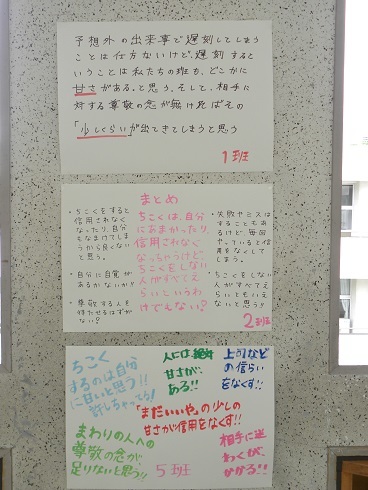 予想外の出来事で遅刻してしまう
ことは仕方ないけど、遅刻すると
いうことは私たちの班も、どこかに
甘さがある。と思う。そして、相手に
対する尊敬の念が無ければその
「少しくらい」が出てきてしまうと思う
1班
まとめ
・ちこくをすると
信用されなく
なったり、自分
もなまけてしま
うから良くない
と思う。
・自分に自覚が
あるかないか!!
・尊敬する人を
待たせるはずが
ない?
ちこくは、自分
にあまかったり、
信用されなく
なっちゃうけど、
ちこくをしない
人がすべてえ
らいというわ
けでもない?
・失敗やミスは
することもあ
るけど毎回
やっていると信
用をなくして
しまう。
・ちこくをしない
人がすべてえ
らいともいえ
ないと思う!!
2班
ちこく
するのは自分
に甘いと思う!!
許しちゃってる!
人には絶対
甘さが、
ある!!
上司など
の信らい
をなくす!!
「まだいいや」の少しの
甘さが信用をなくす!!
まわりの人への
尊敬の念が
足りないと思う!!
5班
相手に迷
わくが、
かかる!!